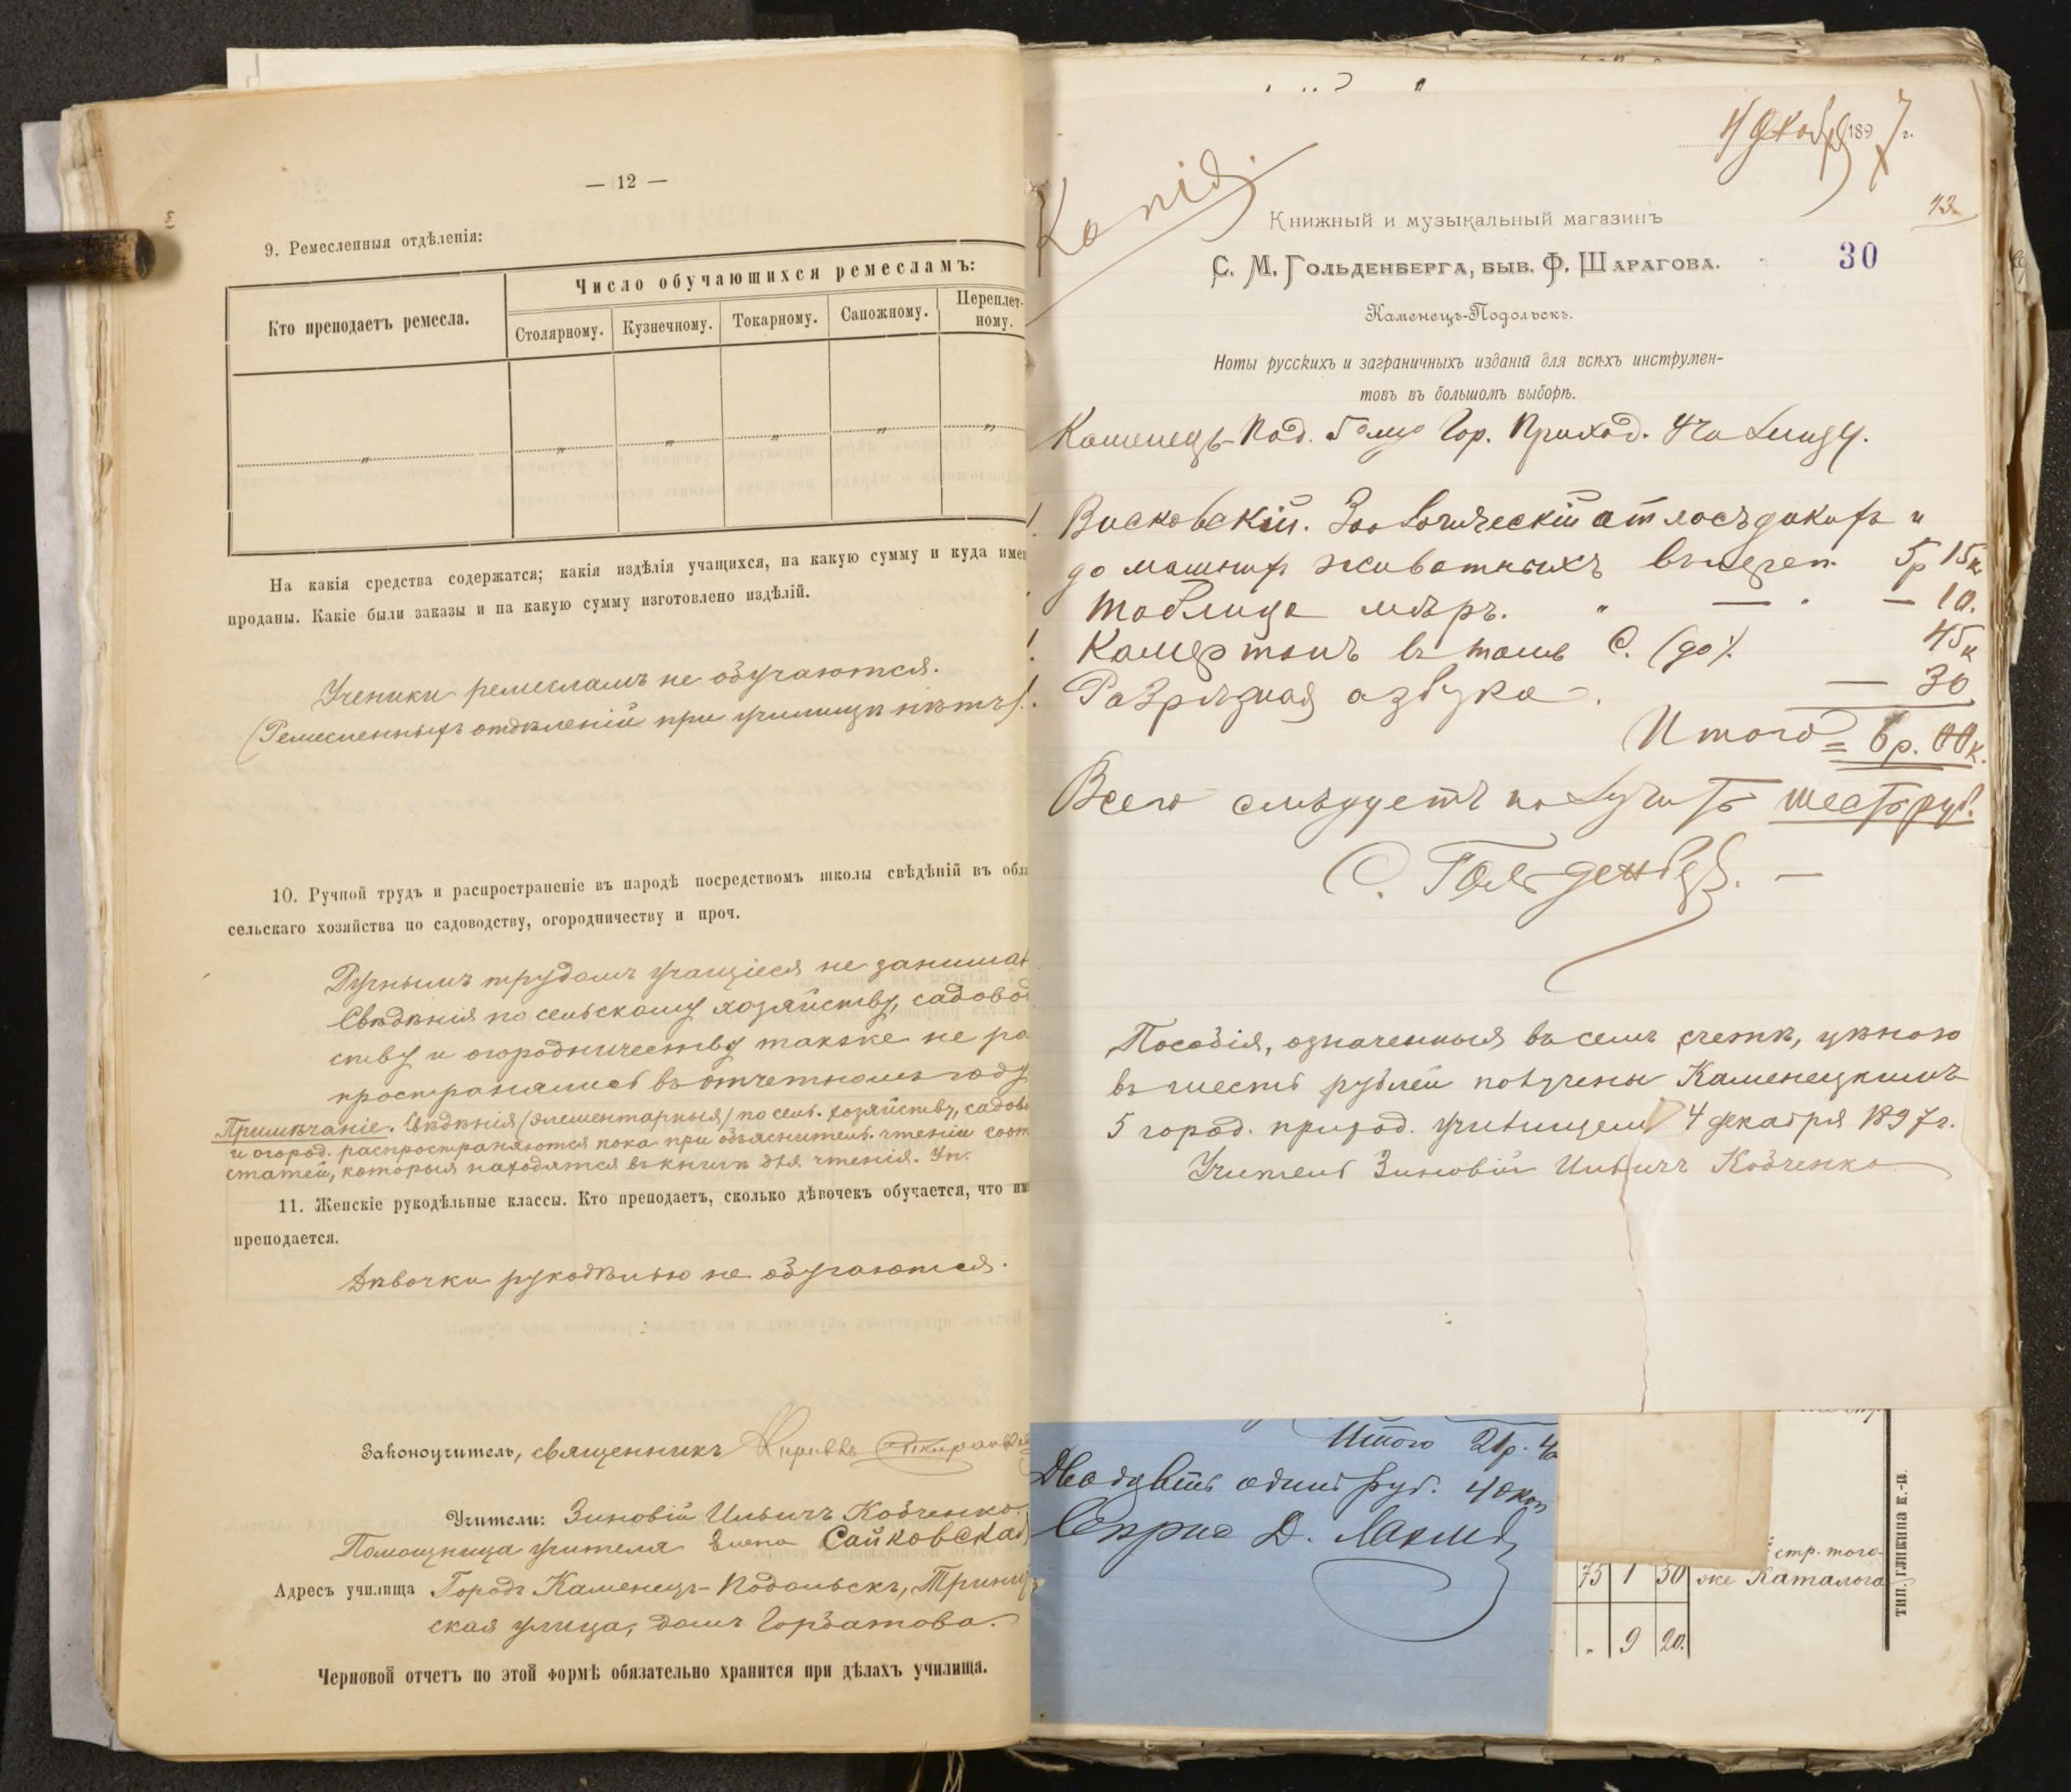 — 12 —
9. Ремесленныя отдѣленія:
Кто преподаетъ ремесла.
Число обучающихся ремесламъ:
Столярному. Кузнечному. Токарному. Сапожному. Переплет-
ному.
„ „ „ „ „ „
На какія средства содержатся; какія издѣлія учащихся, на какую сумму и куда име
проданы. Какіе были заказы и на какую сумму изготовлено издѣлій.
Ученики ремесламъ не обучаются.
(Ремесленныхъ отдѣленій при училищѣ нѣтъ).
10. Ручной трудъ и распространеніе въ народѣ посредствомъ школы свѣдѣній въ обла
сельскаго хозяйства по садоводству, огородничеству и проч.
Ручнымъ трудомъ учащіеся не занима
Свѣдѣнія по сельскому хозяйству, садовод
ству и огородничеству также не ра
пространялись въ отчетномъ году
Примѣчаніе. Свѣдѣнія (элементарныя) по сел. хозяйству, садов
и огород. распространяются пока при объяснител. чтеніи соот
статей, которыя находятся въ книгѣ для чтенія. Уч.
11. Женскіе рукодѣльные классы. Кто преподаетъ, сколько дѣвочекъ обучается, что им
преподается.
Дѣвочки рукодѣлью не обучаются.
Законоучитель, священникъ Кириллъ
Учители: Зиновій Ильичъ Кобченко.
Помощница учителя Елена Сайковская
Адресъ училища Городъ Каменецъ-Подольскъ, Триниц
ская улица, домъ Горбатова.
Черновой отчетъ по этой формѣ обязательно хранится при дѣлахъ училища.
4 Декабря 1897 г.
Копія.
43
Книжный и музыкальный магазинъ
С. М. Гольденберга, быв. Ф. Шарагова.
30
Каменецъ-Подольскъ.
Ноты русскихъ и заграничныхъ изданій для всѣхъ инструмен-
товъ въ большомъ выборѣ.
Каменецъ-Под. 5му Гор. Приход. Училищу.
1. Висковскій. Зоологическій атласъ дикихъ и
домашнихъ животныхъ въ перепл. 5р 15к
Таблица мѣръ. " — " — 10.
1. Камертонъ въ тонъ С. (до). 45к
1. Разрѣзная азбука. — 30
Итого = 6 р. 00к.
Всего слѣдуетъ получить шесть руб.
С. Гольденберг. —
Пособія, означенныя въ семъ счетѣ, цѣною
въ шесть рублей получены Каменецкимъ
5 город. приход. училищемъ 4 декабря 1897 г.
Учитель Зиновій Ильичъ Кобченко
Итого 21р. 40
Двадцать одинъ руб. 40 коп
Д.
стр. того-
75 1 50 же Каталога
" 9 20.
ТИП. ГЛИКИНА К.-П.